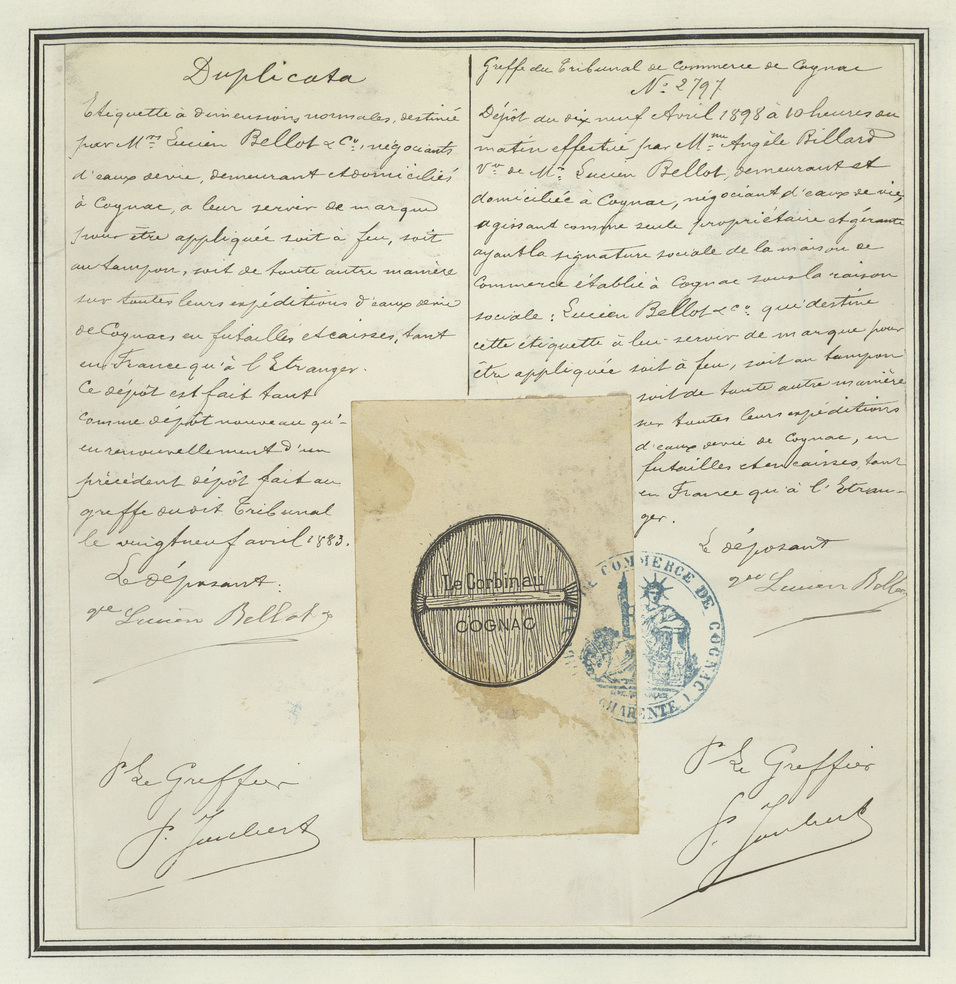 Duplicata
Etiquette à dimensions normales, destinée
par Mrs Lucien Bellot & Cie, négociants
d'eaux devie, demeurant etdomiciliés
à Cognac, a leur servir de marque
pour être appliquée soit à feu, soit
au tampon, soit de toute autre manière
sur toutes leurs expéditions d'eaux devie
de Cognacs en futailles et caisses, tant
en France qu'à l'Etranger.
Ce dépôt est fait tant
comme dépôt nouveau qu'-
en renouvellement d'un
précédent dépôt fait au
greffe dudit Tribunal
le vingtneuf avril 1883.
Le déposant:
Lucien Bellot
Pr Le Greffier
P. Joubert
Greffe du Tribunal de Commerce de Cognac
No 2797
Dépôt du dix neuf Avril 1898 à 10 heures du
matin effectué par Mme Angèle Billard
Vve de Mr Lucien Bellot, demeurant et
domiciliée à Cognac, négociant d'eaux de vie,
agissant comme seule propriétaire et gérante
ayant la signature sociale de la maison de
Commerce établie à Cognac sous la raison
sociale: Lucien Bellot & Co. qui destine
cette étiquette à leur servir de marque pour
être appliquée soit à feu, soit au tampon
soit de toute autre manière
sur toutes leurs expéditions
d'eaux devie de Cognac, en
futailles et en caisses, tant
en France qu'à l'Etran-
ger.
Le déposant
Lucien Bellot
Pr Le Greffier
P. Joubert
Le Corbinau
COGNAC
DE COMMERCE DE COGNAC
CHARENTE